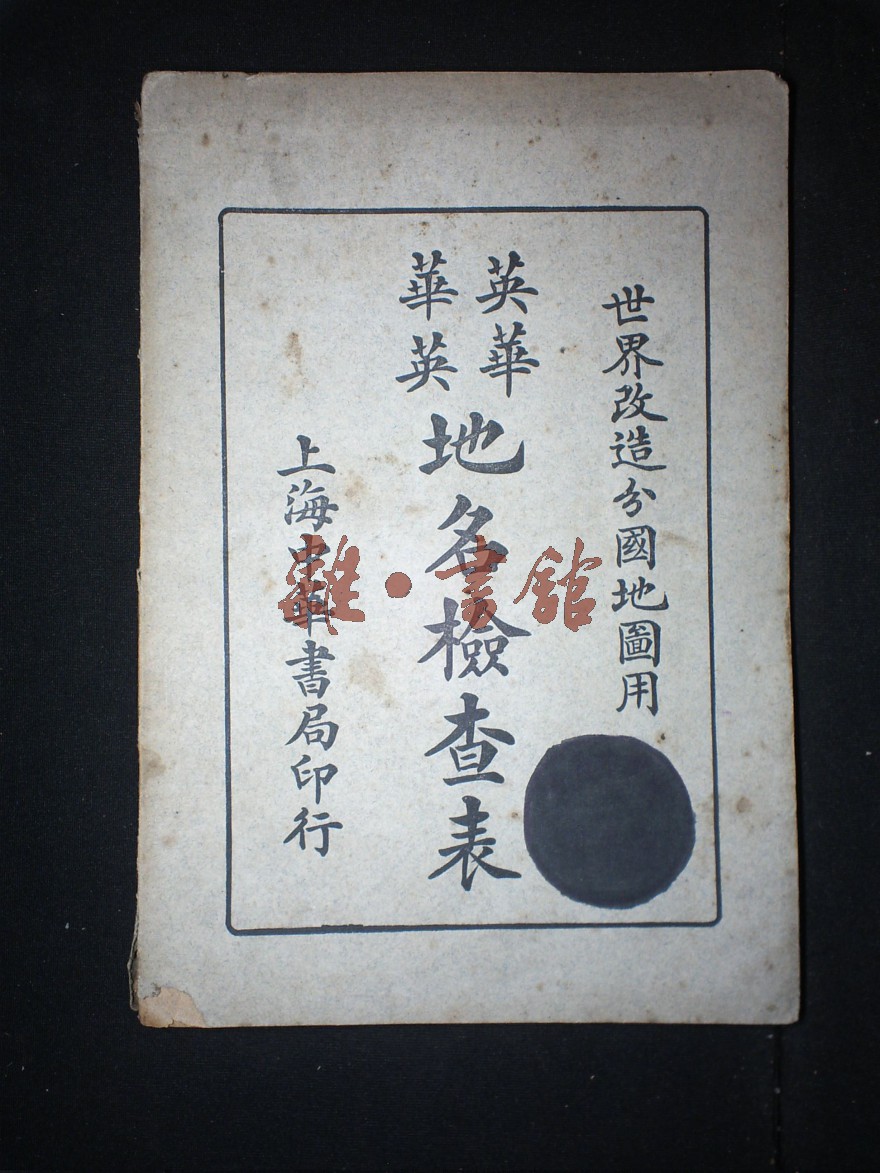 世界改造分國地圖用
英華
華英
地名檢查表
上海中華書局印行
雜·書館